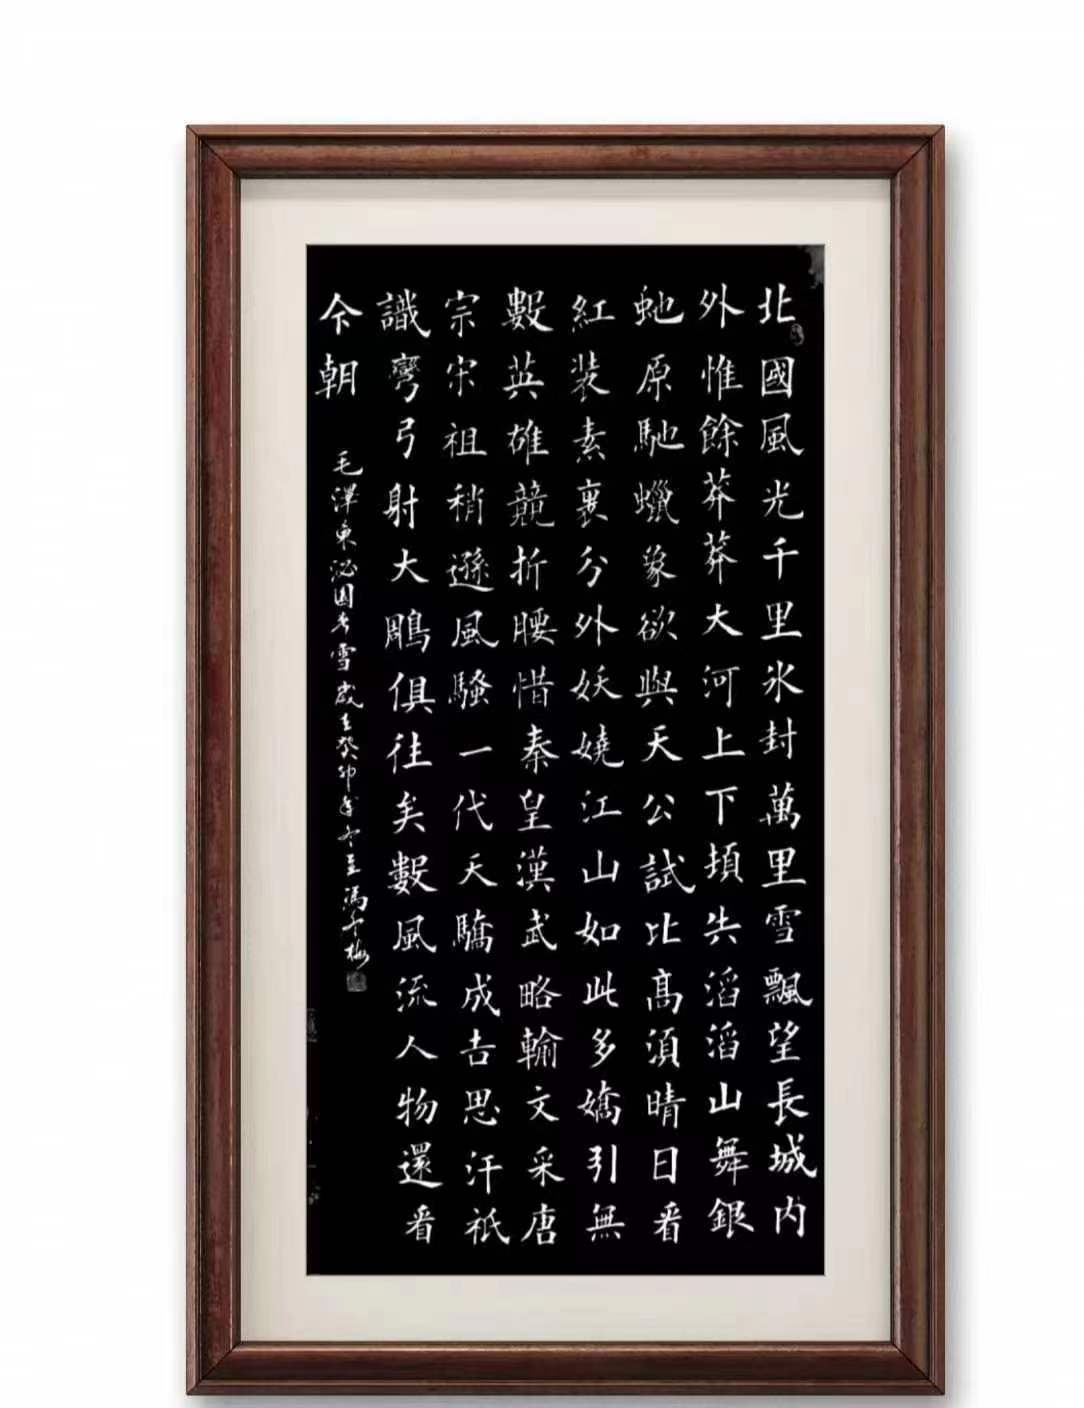 北國風光千里氷封萬里雪飄望長城内
外惟餘莽莽大河上下頓失滔滔山舞銀
虵原馳蠟象欲與天公試比髙須晴日看
紅裝素裹分外妖嬈江山如此多嬌引無
數英雄競折腰惜秦皇漢武略輸文采唐
宗宋祖稍遜風騷一代天驕成吉思汗祇
識彎弓射大鵰俱往矣數風流人物還看
今朝
毛澤東沁園春雪歲在癸卯年冬至馮梅